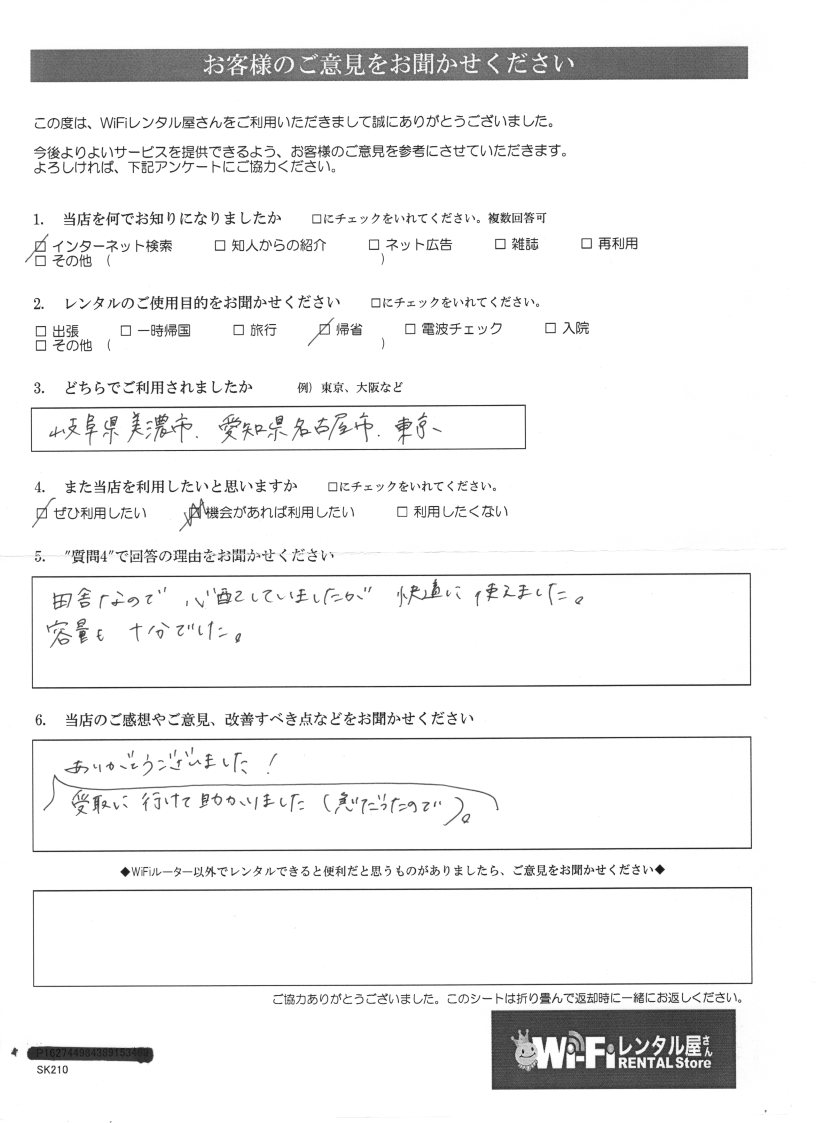 お客様のご意見をお聞かせください
この度は、WiFiレンタル屋さんをご利用いただきまして誠にありがとうございました。
今後よりよいサービスを提供できるよう、お客様のご意見を参考にさせていただきます。
よろしければ、下記アンケートにご協力ください。
1. 当店を何でお知りになりましたか □にチェックをいれてください。複数回答可
□ インターネット検索 □ 知人からの紹介 □ ネット広告 □ 雑誌 □ 再利用
□ その他 ( )
2. レンタルのご使用目的をお聞かせください □にチェックをいれてください。
□ 出張 □ 一時帰国 □ 旅行 □ 帰省 □ 電波チェック □ 入院
□ その他 ( )
3. どちらでご利用されましたか 例）東京、大阪など
岐阜県美濃市、愛知県名古屋市、東京、
4. また当店を利用したいと思いますか □にチェックをいれてください。
□ ぜひ利用したい □ 機会があれば利用したい □ 利用したくない
5. "質問4"で回答の理由をお聞かせください
田舎なので 心配していましたが 快適に 使えました。
容量も 十分でした。
6. 当店のご感想やご意見、改善すべき点などをお聞かせください
ありがとうございました！
受取に 行けて 助かりました（急だったので）。
◆WiFiルーター以外でレンタルできると便利だと思うものがありましたら、ご意見をお聞かせください◆
ご協力ありがとうございました。このシートは折り畳んで返却時に一緒にお返しください。
SK210
Wi-Fi レンタル屋さん
RENTAL Store